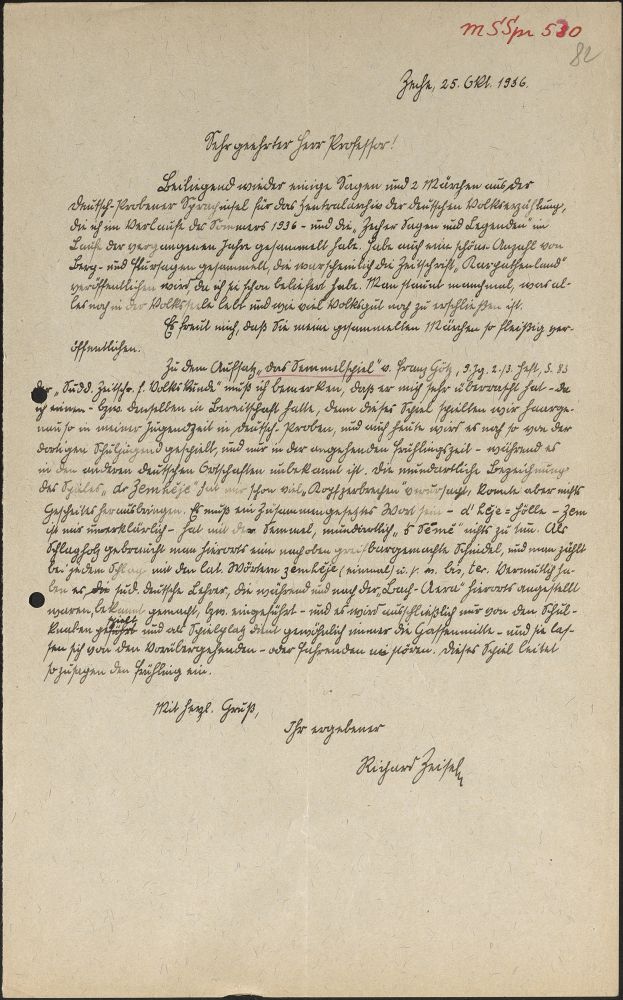 MSSpr 530
82
Zeche, 25. Okt. 1936.
Sehr geehrter Herr Professor!
Beiliegend wieder einige Sagen und 2 Märchen aus der
Deutsch-Probener Sprachinsel für das Zentralarchiv der deutschen Volkserzählung,
die ich im Verlaufe des Sommers 1936 - und die "Zecher Sagen und Legenden" im
Laufe der vergangenen Jahre gesammelt habe. Habe auch eine schöne Anzahl von
Berg- und Flursagen gesammelt, die warscheinlich die Zeitschrift "Karpathenland"
veröffentlichen wird, da ich sie schon beliefert habe. Man staunt manchmal, was al-
les noch in der Volksseele lebt und wie viel Volksgut noch zu erschließen ist.
Es freut mich, daß Sie meine gesammelten Märchen so fleißig ver-
öffentlichen.
Zu dem Aufsatz "Das Semmelspiel" v. Franz Götz, 9. Jg. 2./3. Heft, S. 83
der "Sudd. Zeitschr. f. Volkskunde" muß ich bemerken, daß er mich sehr überrascht hat - da
ich einen - bzw. denselben in Bereitschaft hatte, denn dieses Spiel spielten wir haarge-
nau so in meiner Jugendzeit in Deutsch-Proben, und auch heute wird es noch so von der
dortigen Schuljugend gespielt, und nur in der angehenden Frühlingszeit - während es
in den anderen deutschen Ortschaften unbekannt ist. Die mundartliche Bezeichnung
des Spieles "de Zemheje" hat mir schon viel "Kopfzerbrechen" verursacht, konnte aber nichts
Gescheites herausbringen. Es muß ein zusammengesetztes Wort sein - d' heje = Hölle - Zem
ist mir unerklärlich - hat mit der Semmel, mundartlich "Seme" nichts zu tun. Als
Schlagholz gebraucht man hierorts eine nach oben greifbargemachte Schindel, und man zählt
bei jedem Schlag mit den lat. Wörtern zemheje (einmal) u. s. w. bis, ter. Vermutlich ha-
ben es die sud. deutsche Lehrer, die während und nach der "Bach-Aera" hierorts angestellt
waren, bekannt gemacht, bzw. eingeführt - und es wird ausschließlich nur von den Schul-
knaben gespielt und als Spielplatz dient gewöhnlich immer die Gassenmitte - und sie las-
sen sich von den Vorübergehenden - oder Fahrenden nie stören. Dieses Spiel leitet
sozusagen den Frühling ein.
Mit herzl. Gruß,
Ihr ergebener
Richard Zeisel